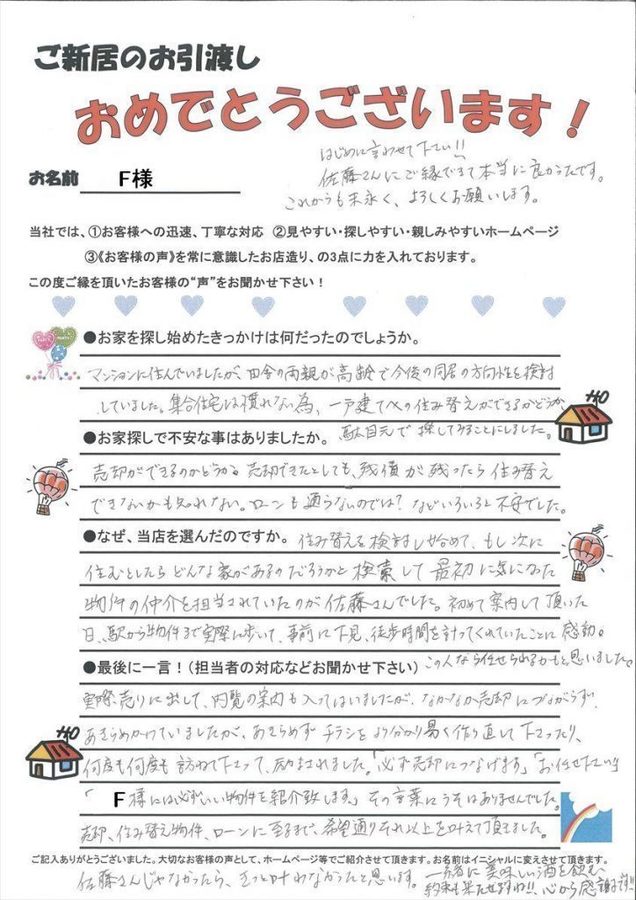 ご新居のお引渡し
おめでとうございます！
はじめに言わせて下さい!!
佐藤さんにご縁できて本当に良かったです。
これからも末永く、よろしくお願いします。
お名前 F様
当社では、①お客様への迅速、丁寧な対応 ②見やすい・探しやすい・親しみやすいホームページ
③《お客様の声》を常に意識したお店造り、の3点に力を入れております。
この度ご縁を頂いたお客様の“声”をお聞かせ下さい！
●お家を探し始めたきっかけは何だったのでしょうか。
マンションに住んでいましたが、田舎の両親が高齢で今後の同居の方向性を検討
していました。集合住宅は慣れない為、一戸建てへの住み替えができるかどうか
駄目元で探してみることにしました。
●お家探しで不安な事はありましたか。
売却ができるのかどうか。売却できたとしても、残債が残ったら住み替え
できないかも知れない。ローンも通らないのでは？などいろいろと不安でした。
●なぜ、当店を選んだのですか。
住み替えを検討し始めて、もし次に
住むとしたらどんな家があるのだろうかと検索して最初に気になった
物件の仲介を担当されていたのが佐藤さんでした。初めて案内して頂いた
日、駅から物件まで実際に歩いて、事前に下見、徒歩時間を計ってくれていたことに感動。
この人なら任せられるかもと思いました。
●最後に一言！（担当者の対応などお聞かせ下さい）
実際売りに出して、内覧の案内も入ってはいましたが、なかなか売却につながらず、
あきらめかけていましたが、あきらめずチラシをより分かり易く作り直して下さったり、
何度も何度も訪ねて下さって、励まされました。「必ず売却につなげます」「お任せ下さい」
「F様には必ずいい物件を紹介致します」その言葉にうそはありませんでした。
売却、住み替え物件、ローンに至るまで、希望通りそれ以上を叶えて頂きました。
ご記入ありがとうございました。大切なお客様の声として、ホームページ等でご紹介させて頂きます。お名前はイニシャルに変えさせて頂きます。
佐藤さんじゃなかったら、きっと叶わなかったと思います。一緒に美味しい酒を飲む
約束も果たせますね!!、心から感謝です!!